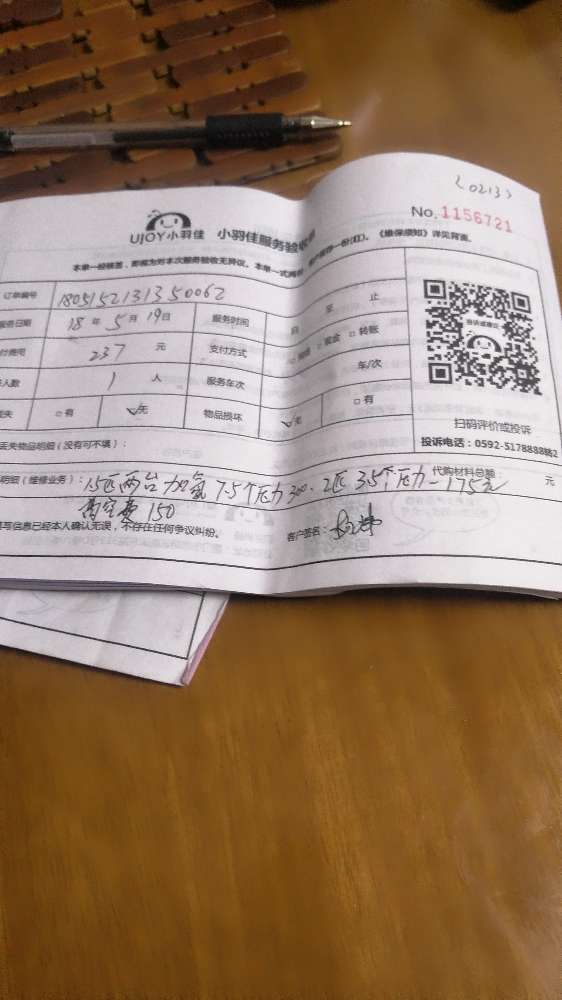 (0213)
No. 1156721
UJOY小羽佳 小羽佳服务验收单
本单一经核签，即视为对本次服务验收无异议。本单一式两份，客户留存一份(红)。《维保须知》详见背面。
订单编号 1805152131350062
服务日期 18 年 5 月 19 日 服务时间 自 至 止
付费用 237 元 支付方式 现金 □ 转账
人数 1 人 服务车次 车/次
丢失 □ 有 ✓无 物品损坏 ✓无 □ 有
扫码评价或投诉
投诉电话：0592-5178888转2
丢失物品明细（没有可不填）：
代购材料总额： 元
明细（维修业务）：1.5匹两台加氟 7.5个压力300、2匹 3.5个压力-175元
真空费 150
填写信息已经本人确认无误，不存在任何争议纠纷。 客户签名：